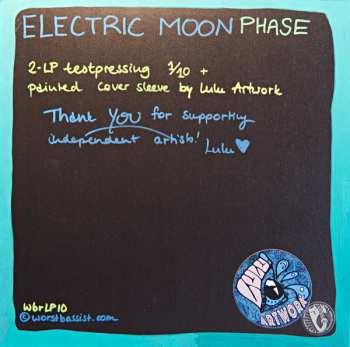 ELECTRIC MOON PHASE
2-LP testpressing 1/10 +
painted cover sleeve by Lulu Artwork
Thank you for supporting
independent artists!
Lulu
WbrLP10
©worstbassist.com
LULU
ARTWORK